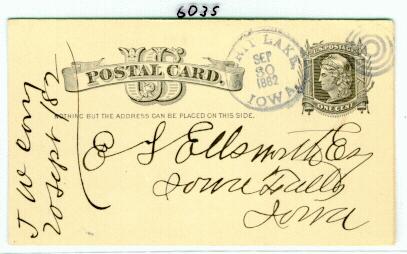 6035
US
POSTAL CARD.
NOTHING BUT THE ADDRESS CAN BE PLACED ON THIS SIDE.
LAKE
SEP
30
1882
IOWA
U.S. POSTAGE
ONE CENT
E S Ellsworth Esq
Iowa Falls
Iowa
J W
20 Sept 182